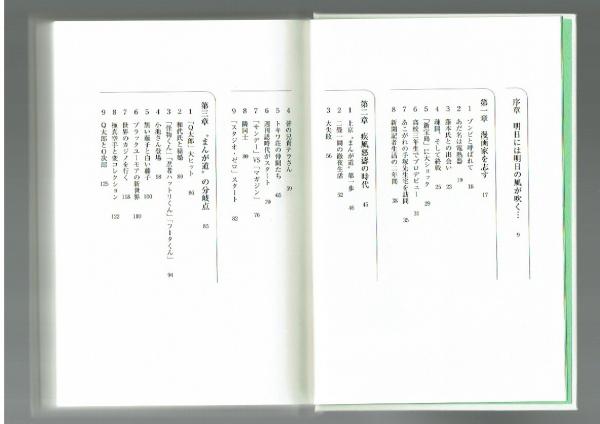 序章 明日には明日の風が吹く… 9
第一章 漫画家を志す 17
1 ゾンビと呼ばれて 18
2 あだ名は電熱器 19
3 藤本氏との出会い 23
4 疎開、そして終戦 25
5 「新宝島」に大ショック 29
6 高校三年生でプロデビュー 31
7 あこがれの手塚先生宅を訪問 35
8 新聞記者生活の一年間 38
第二章 疾風怒濤の時代 45
1 上京、“まんが道”第一歩 46
2 二畳一間の徹夜生活 52
3 大失敗 56
4 僧の兄貴テラさん 59
5 トキワ荘の仲間たち 65
6 週刊誌時代がスタート 70
7 「サンデー」VS「マガジン」 76
8 隣同士 80
9 「スタジオ・ゼロ」スタート 82
第三章 “まんが道”の分岐点 85
1 「Q太郎」大ヒット 86
2 和代氏と結婚 89
3 「怪物くん」「忍者ハットリくん」「フータくん」 94
4 小池さん登場 98
5 黒い藤子と白い藤子 100
6 ブラックユーモアの新世界
7 世界のカジノを行く
8 極真空手と変コレクション 122
9 Q太郎とO次郎 125